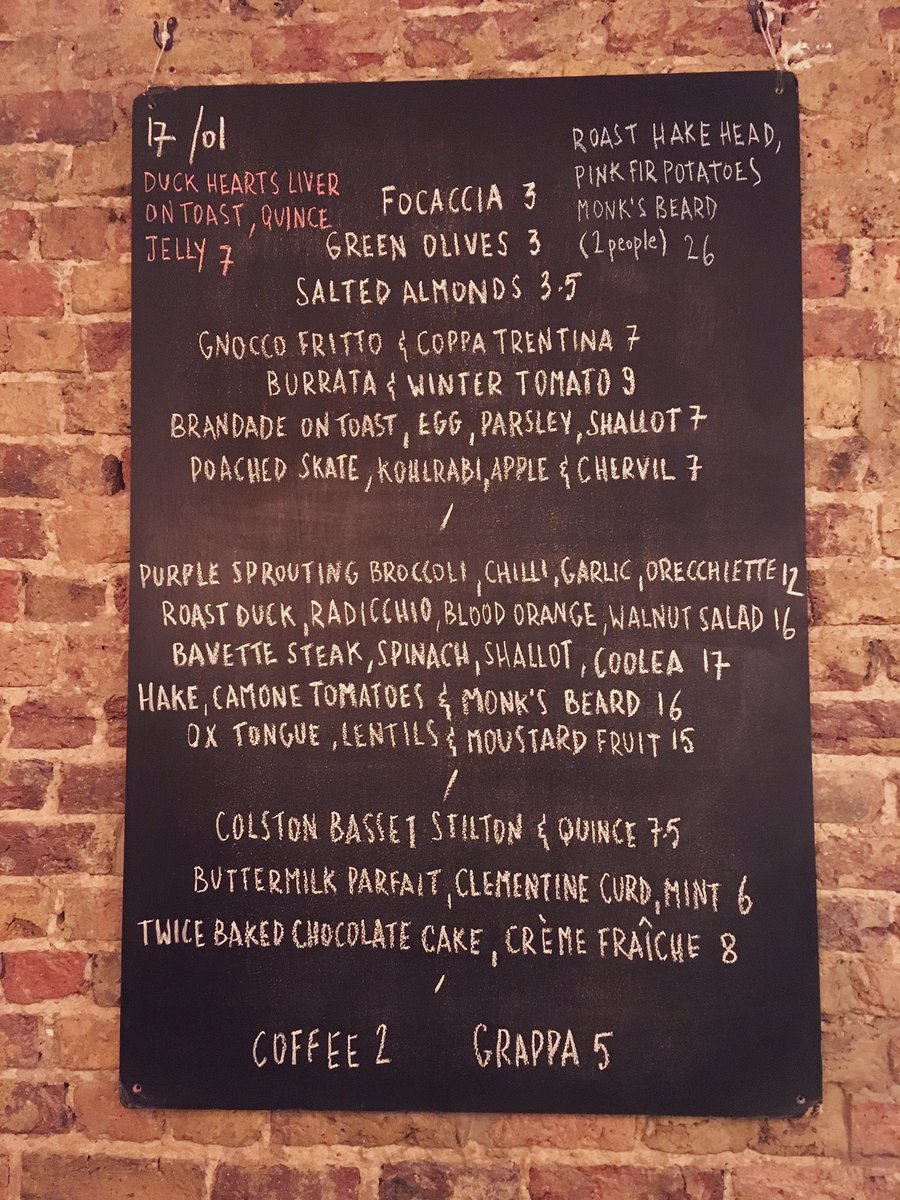 17/01
DUCK HEARTS LIVER
ON TOAST, QUINCE
JELLY 7
ROAST HAKE HEAD,
PINK FIR POTATOES
MONK'S BEARD
(2 people) 26
FOCACCIA 3
GREEN OLIVES 3
SALTED ALMONDS 3.5
GNOCCO FRITTO & COPPA TRENTINA 7
BURRATA & WINTER TOMATO 9
BRANDADE ON TOAST, EGG, PARSLEY, SHALLOT 7
POACHED SKATE, KOHLRABI, APPLE & CHERVIL 7
/
PURPLE SPROUTING BROCCOLI, CHILLI, GARLIC, ORECCHIETTE 12
ROAST DUCK, RADICCHIO, BLOOD ORANGE, WALNUT SALAD 16
BAVETTE STEAK, SPINACH, SHALLOT, COOLEA 17
HAKE, CAMONE TOMATOES & MONK'S BEARD 16
OX TONGUE, LENTILS & MOUSTARD FRUIT 15
/
COLSTON BASSET STILTON & QUINCE 7.5
BUTTERMILK PARFAIT, CLEMENTINE CURD, MINT 6
TWICE BAKED CHOCOLATE CAKE, CRÈME FRAÎCHE 8
/
COFFEE 2 GRAPPA 5